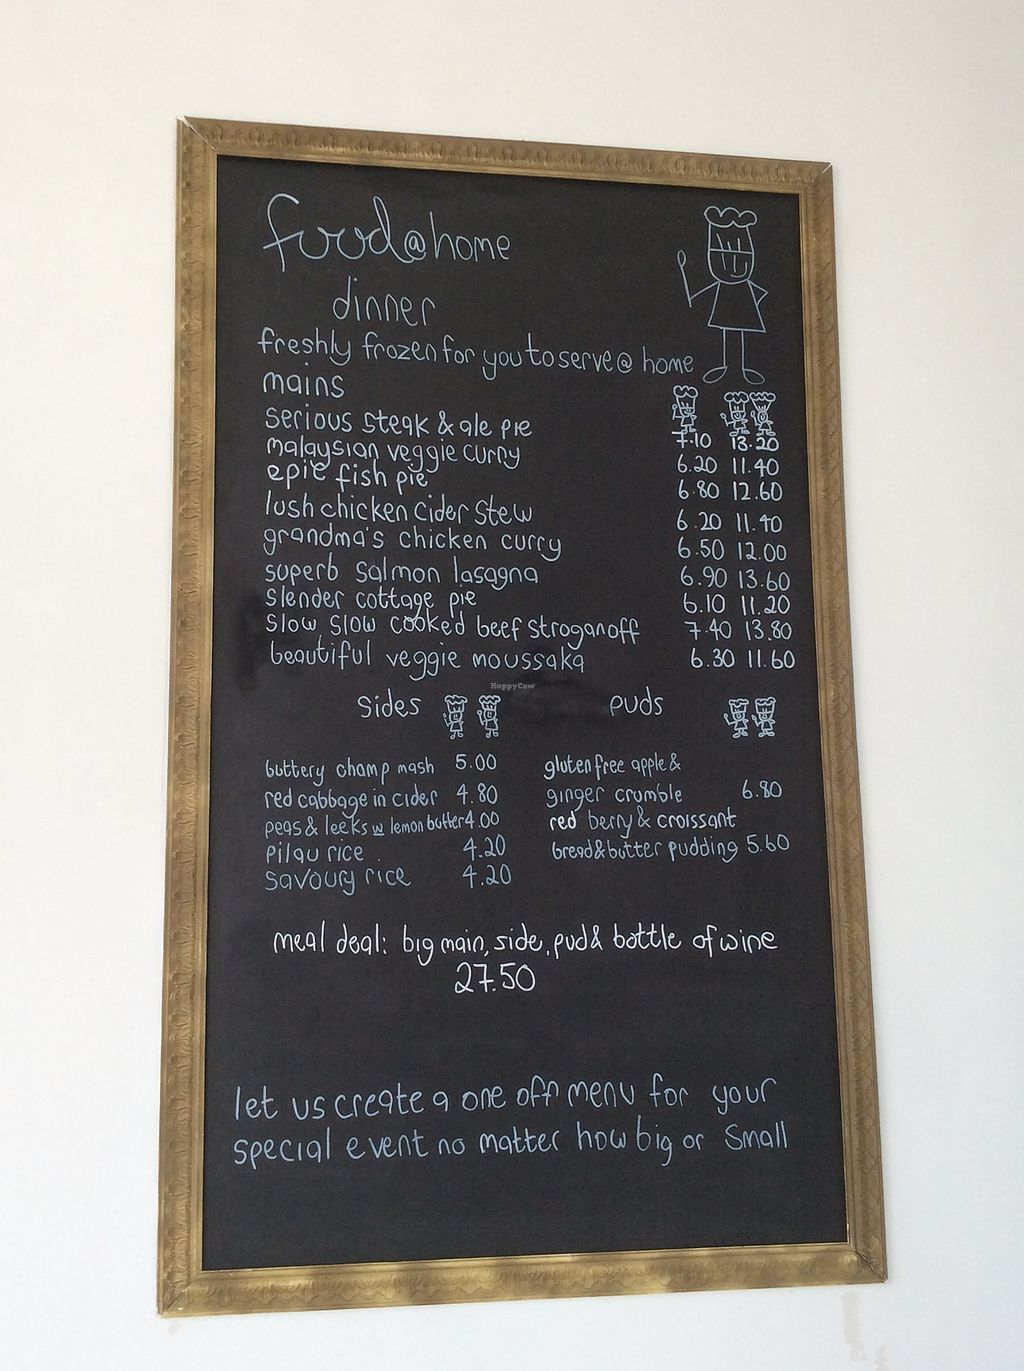 food@home
dinner
freshly frozen for you to serve @ home
mains
serious steak & ale pie 7.10 13.20
malaysian veggie curry 6.20 11.40
epic fish pie 6.80 12.60
lush chicken cider stew 6.20 11.40
grandma's chicken curry 6.50 12.00
superb salmon lasagna 6.90 13.60
slender cottage pie 6.10 11.20
slow slow cooked beef stroganoff 7.40 13.80
beautiful veggie moussaka 6.30 11.60
HappyCow
sides
buttery champ mash 5.00
red cabbage in cider 4.80
peas & leeks w lemon butter 4.00
pilau rice 4.20
savoury rice 4.20
puds
gluten free apple &
ginger crumble 6.80
red berry & croissant
bread & butter pudding 5.60
meal deal: big main, side, pud & bottle of wine
27.50
let us create a one off menu for your
special event no matter how big or small